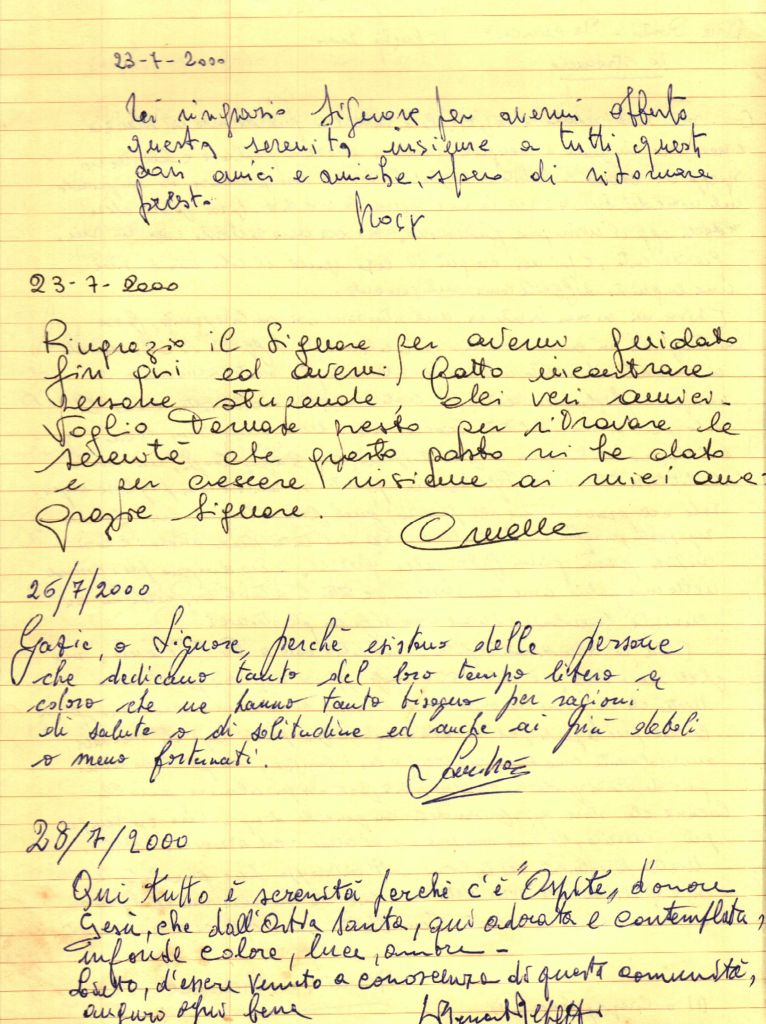 23-7-2000
ringrazio Signore per avermi offerto
questa serenità insieme a tutti questi
cari amici e amiche, spero di ritornare
presto.
23-7-2000
Ringrazio il Signore per avermi guidato
fin qui ed avermi fatto incontrare
persone stupende, dei veri amici.
Voglio Tornare presto per ritrovare la
serenità che questo posto mi ha dato
e per crescere insieme ai miei
Grazie Signore.
Ornella
26/7/2000
Gazie, o Signore, perchè esistono delle persone
che dedicano tanto del loro tempo libero a
coloro che ne hanno tanto bisogno per ragioni
di salute o di solitudine ed anche ai più deboli
o meno fortunati.
28/7/2000
Qui tutto è serenità perchè c'è "Ospite„ d'onore
Gesù, che dall'Ostia Santa, qui adorata e contemplata,
infonde calore, luce, amore -
Lieto, d'essere venuto a conoscenza di questa comunità,
auguro ogni bene